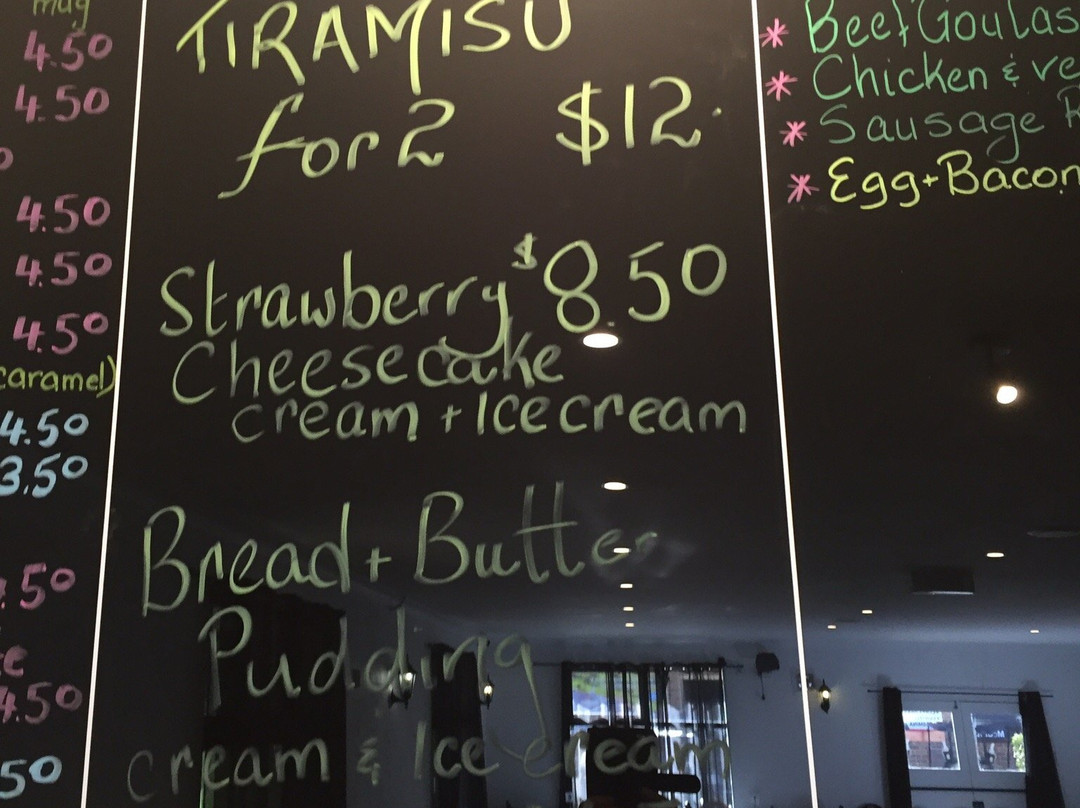 mug
4.50
4.50
4.50
4.50
4.50
caramel)
4.50
3.50
.50
4.50
50
TIRAMISU
for 2 $12.
Strawberry $8.50
Cheesecake
cream + Icecream
Bread + Butter
Pudding
cream & Ice cream
* Beef Goulas
* Chicken & ve
* Sausage R
* Egg + Bacon